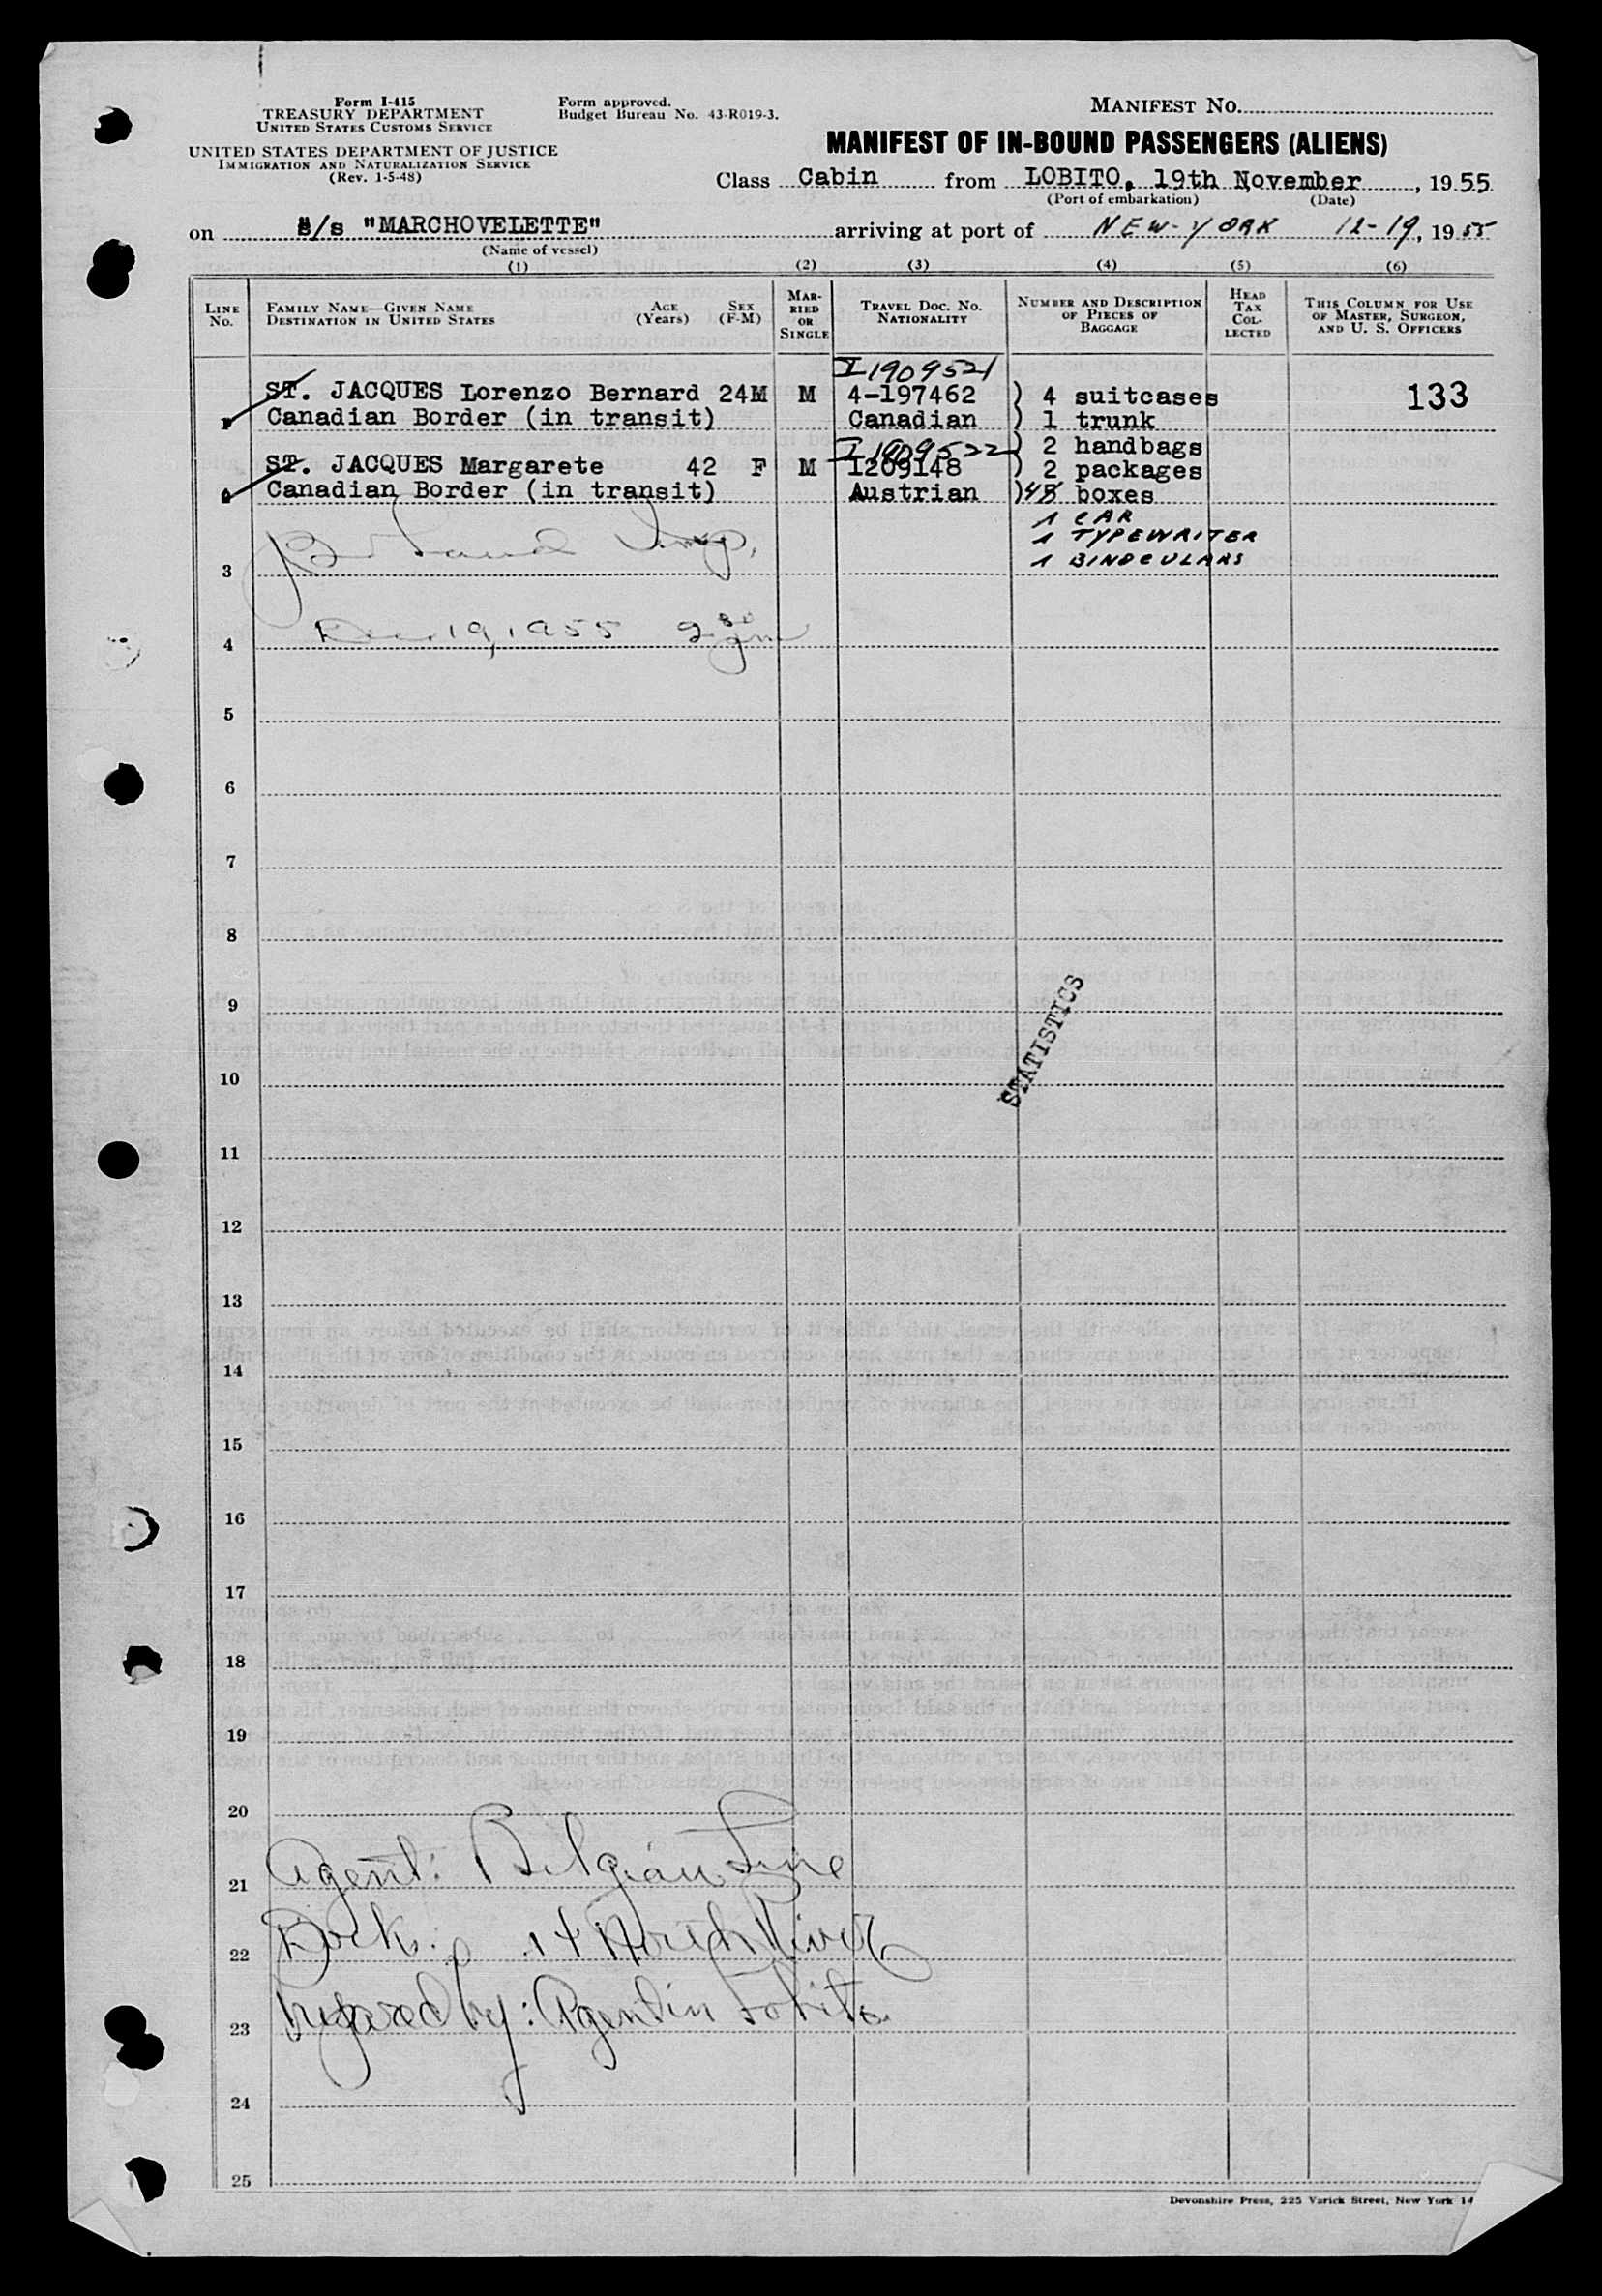 Form I-415
TREASURY DEPARTMENT
UNITED STATES CUSTOMS SERVICE
UNITED STATES DEPARTMENT OF JUSTICE
IMMIGRATION AND NATURALIZATION SERVICE
(Rev. 1-5-48)
Form approved.
Budget Bureau No. 43-R019-3.
MANIFEST NO.
MANIFEST OF IN-BOUND PASSENGERS (ALIENS)
Class Cabin from LOBITO, 19th November, 1955
(Port of embarkation) (Date)
on s/s "MARCHOVELETTE" arriving at port of NEW-YORK 12-19, 1955
(Name of vessel)
(1) (2) (3) (4) (5) (6)
LINE No. FAMILY NAME—GIVEN NAME DESTINATION IN UNITED STATES AGE (Years) SEX (F-M) MARRIED OR SINGLE TRAVEL DOC. NO. NATIONALITY NUMBER AND DESCRIPTION OF PIECES OF BAGGAGE HEAD TAX COLLECTED THIS COLUMN FOR USE OF MASTER, SURGEON, AND U. S. OFFICERS
I 1909521
ST. JACQUES Lorenzo Bernard 24M M 4-197462 ) 4 suitcases 133
Canadian Border (in transit) Canadian ) 1 trunk
I 1909522 ) 2 handbags
ST. JACQUES Margarete 42 F M 1209148 ) 2 packages
Canadian Border (in transit) Austrian ) boxes
1 CAR
1 TYPEWRITER
1 BINOCULARS
3
Dec. 19, 1955
4
5
6
7
8
9
STATISTICS
10
11
12
13
14
15
16
17
18
19
20
Agent: Belgian Line
21
Dock: 14 North River
22
Prepared by: Agent in Lobito
23
24
25
Devonshire Press, 225 Varick Street, New York 14